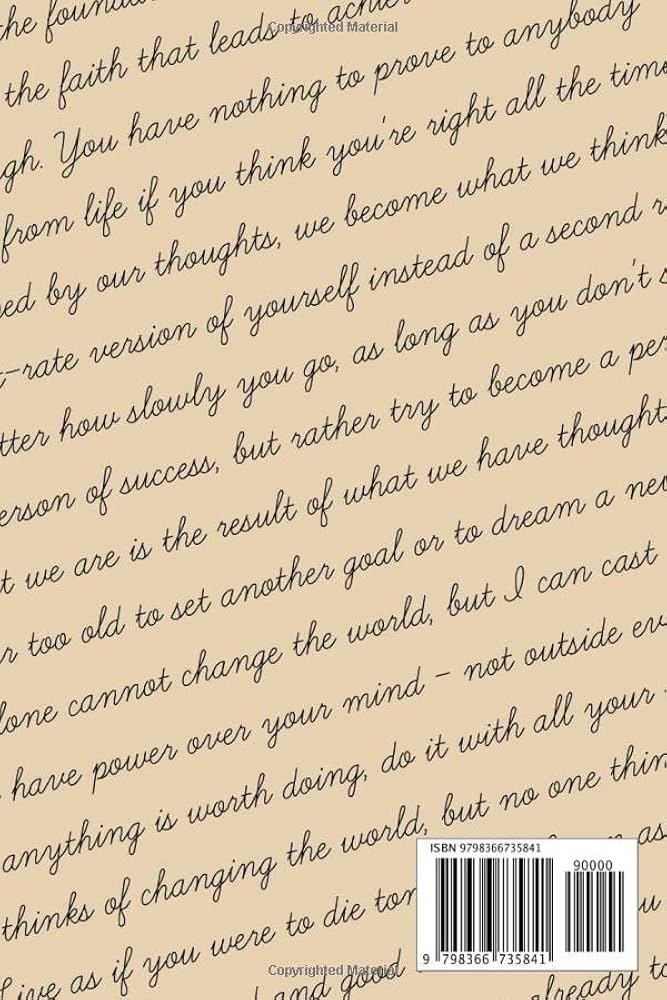 Copyrighted Material
the founda
the faith that leads to achie
gh. You have nothing to prove to anybody
from life if you think you're right all the time
ped by our thoughts, we become what we think
t-rate version of yourself instead of a second r
tter how slowly you go, as long as you don't s
erson of success, but rather try to become a per
t we are is the result of what we have thought
r too old to set another goal or to dream a new
lone cannot change the world, but I can cast
have power over your mind - not outside ev
anything is worth doing, do it with all your
thinks of changing the world, but no one thin
Live as if you were to die tom
as
u
and good
already to
ISBN 9798366735841
90000
9 798366 735841
Copyrighted Material